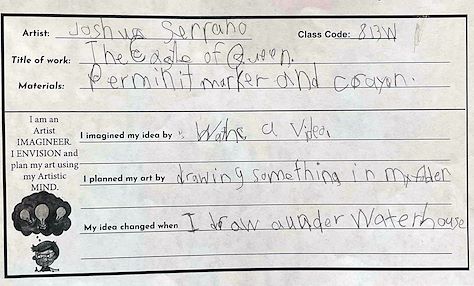 Artist: Joshua Serrano Class Code: 813W
Title of work: The Eagle of Queen.
Materials: Permihit marker and crayon.
I am an
Artist
IMAGINEER.
I ENVISION and
plan my art using
my Artistic
MIND.
I imagined my idea by a Video
I planned my art by drawing something in my
My idea changed when I draw Waterhouse